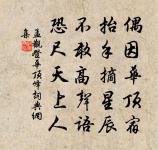 偶因華頂宿
抬手摘星辰
不敢高聲語
恐尺天上人
孟觀登華頂峰詞典網
集